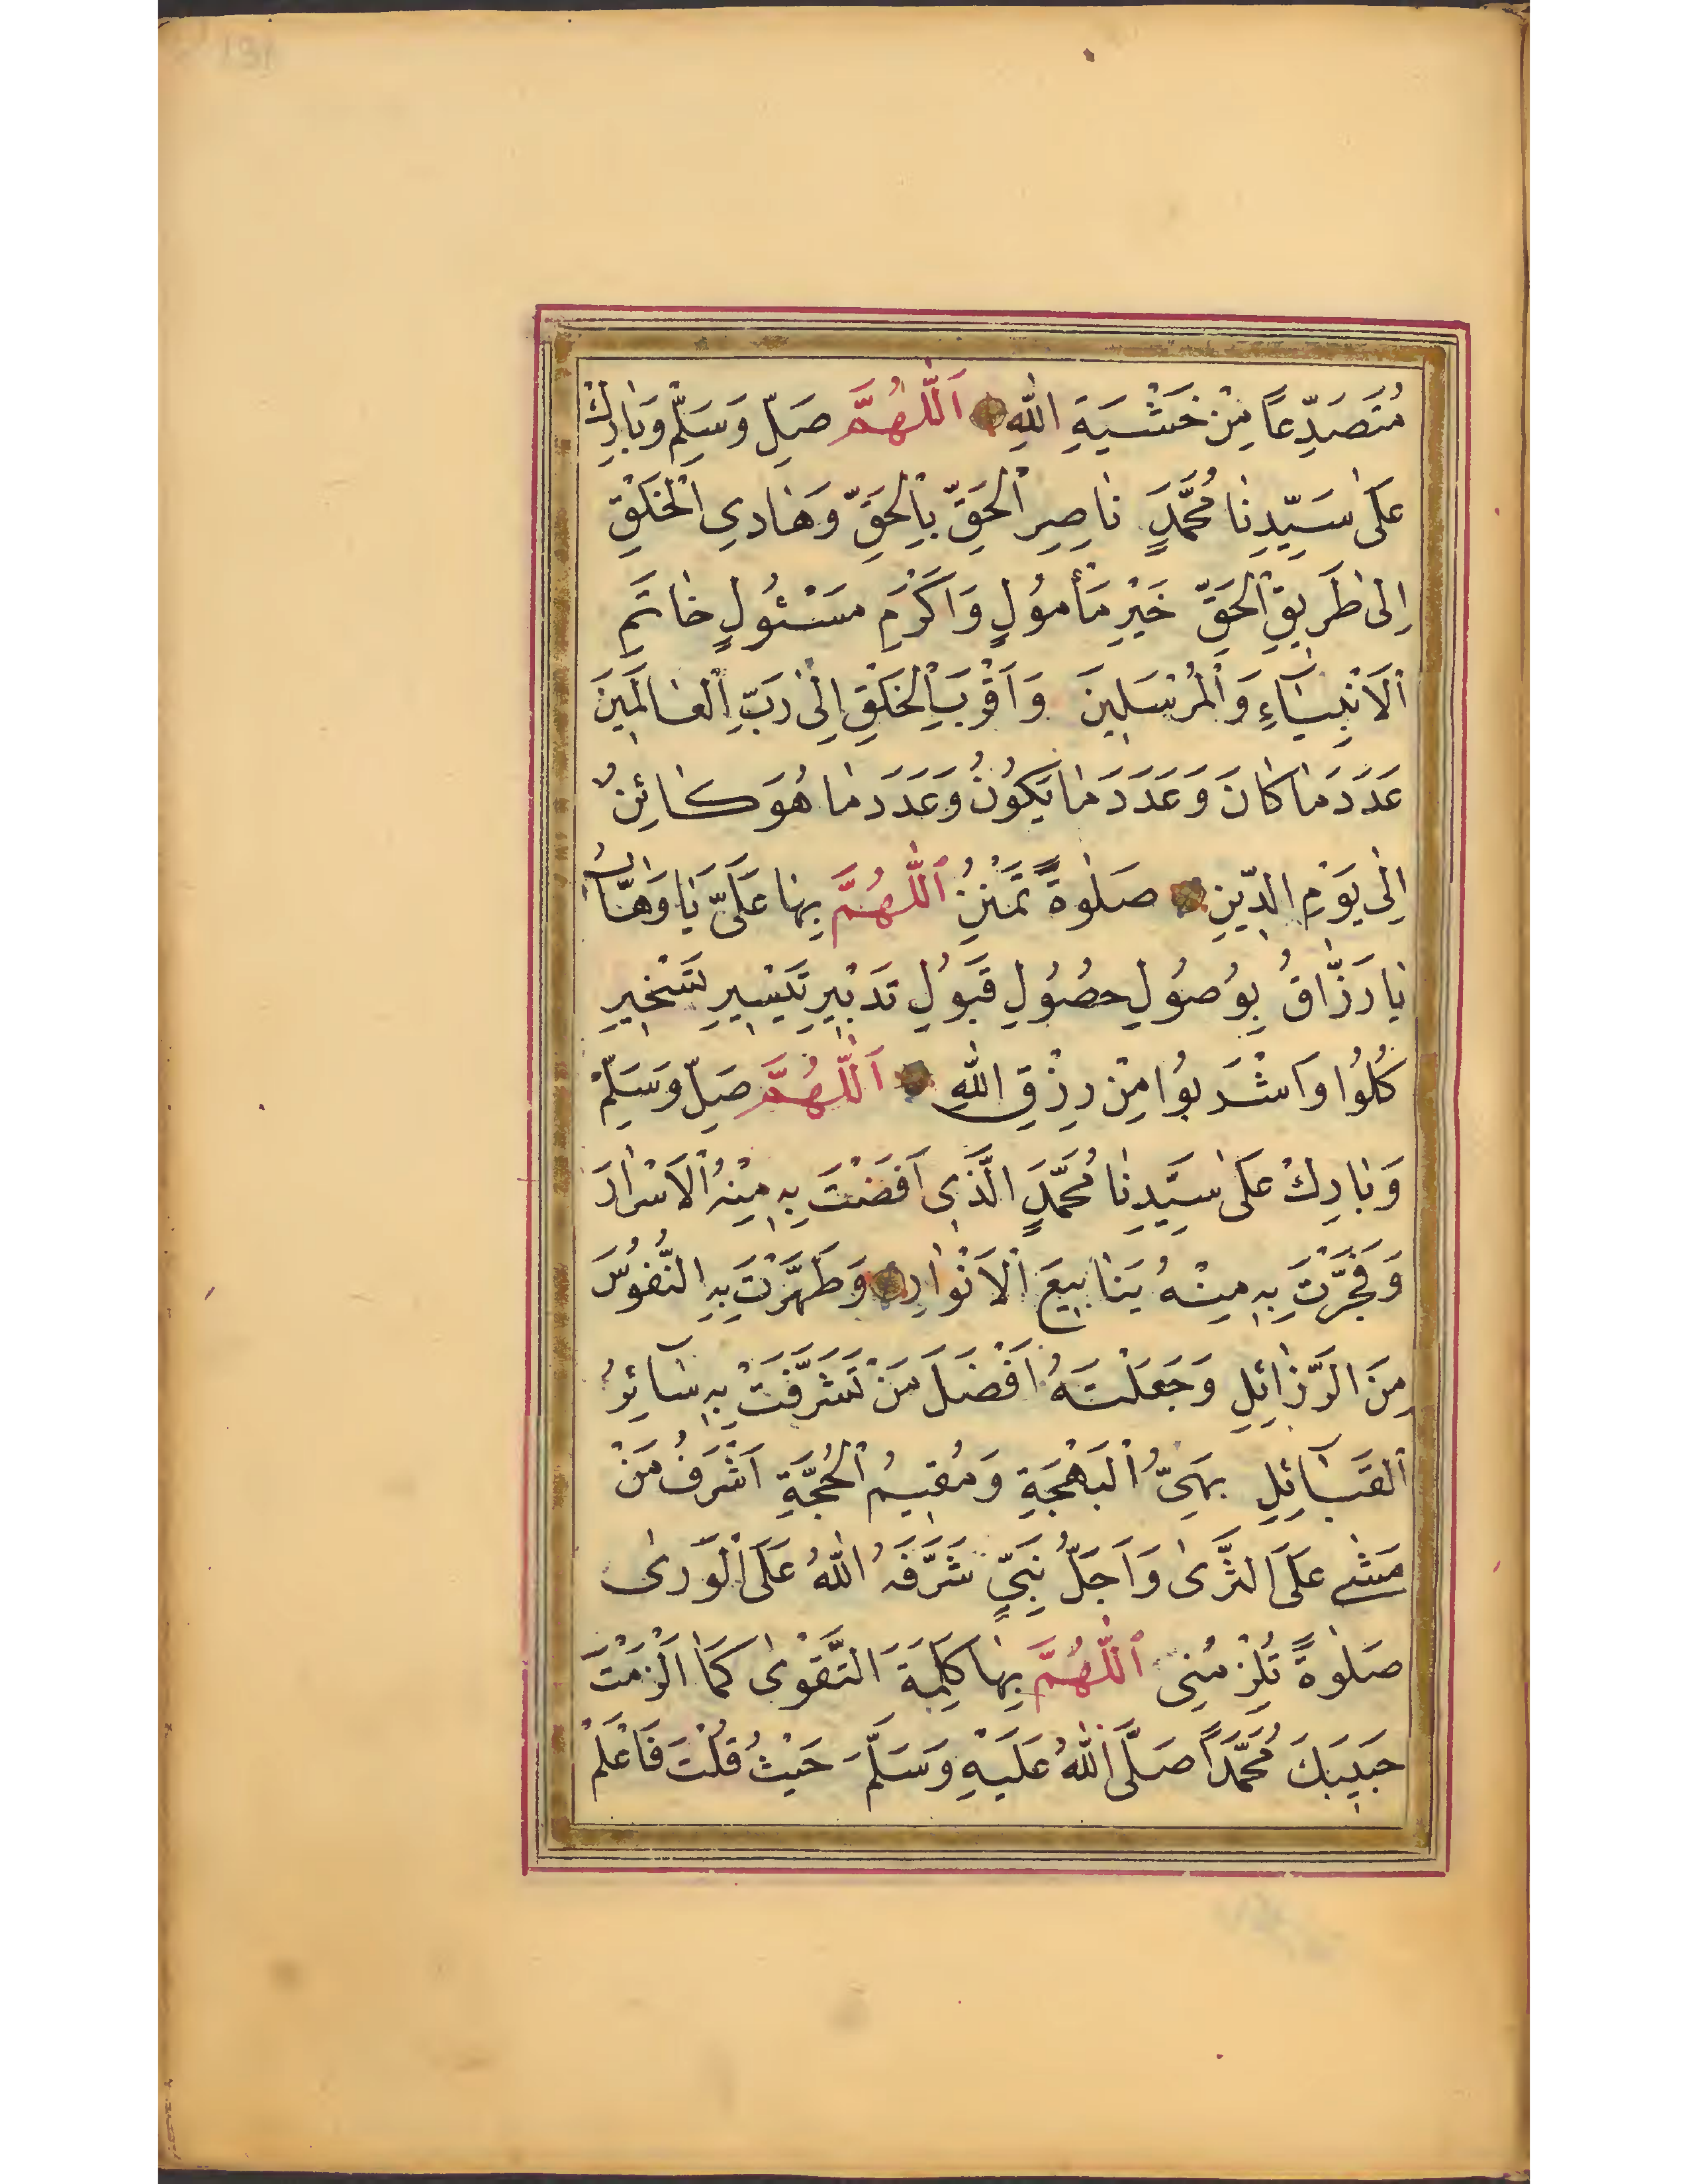 مُتَصَدِّعاً مِنْ خَشْيَةِ اللهِ اَللّٰهُمَّ صَلِّ وَسَلِّمْ وَبَارِكْ
عَلٰى سَيِّدِنَا مُحَمَّدٍ نَاصِرِ الْحَقِّ بِالْحَقِّ وَهَادِي الْخَلْقِ
اِلٰى طَرِيقِ الْحَقِّ خَيْرِ مَأْمُولٍ وَاَكْرَمِ مَسْئُولٍ خَاتَمِ
الْاَنْبِيَاءِ وَالْمُرْسَلِينَ وَاَقْرَبِ الْخَلْقِ اِلٰى رَبِّ الْعَالَمِينَ
عَدَدَ مَا كَانَ وَعَدَدَ مَا يَكُونُ وَعَدَدَ مَا هُوَ كَائِنٌ
اِلٰى يَوْمِ الدِّينِ صَلٰوةً تَمْنُنُ اَللّٰهُمَّ بِهَا عَلَيَّ يَا وَهَّابُ
يَا رَزَّاقُ بِوُصُولِ حُصُولِ قَبُولِ تَدْبِيرِ تَيْسِيرِ تَسْخِيرِ
كُلُوا وَاشْرَبُوا مِنْ رِزْقِ اللهِ اَللّٰهُمَّ صَلِّ وَسَلِّمْ
وَبَارِكْ عَلٰى سَيِّدِنَا مُحَمَّدٍ الَّذِى اَفَضْتَ بِهِ مِنْهُ الْاَسْرَارَ
وَفَجَّرْتَ بِهِ مِنْهُ يَنَابِيعَ الْاَنْوَارِ وَطَهَّرْتَ بِهِ النُّفُوسَ
مِنَ الرَّزَائِلِ وَجَعَلْتَهُ اَفْضَلَ مَنْ تَشَرَّفَتْ بِهِ سَائِرُ
الْقَبَائِلِ بَهِيُّ الْبَهْجَةِ وَمُقِيمُ الْحُجَّةِ اَشْرَفُ مَنْ
مَشٰى عَلَى الثَّرٰى وَاَجَلُّ نَبِيٍّ شَرَّفَهُ اللهُ عَلَى الْوَرٰى
صَلٰوةً تُلْزِمُنِى اَللّٰهُمَّ بِهَا كَلِمَةَ التَّقْوٰى كَمَا اَلْزَمْتَ
حَبِيبَكَ مُحَمَّداً صَلَّى اللهُ عَلَيْهِ وَسَلَّمَ حَيْثُ قُلْتَ فَاعْلَمْ